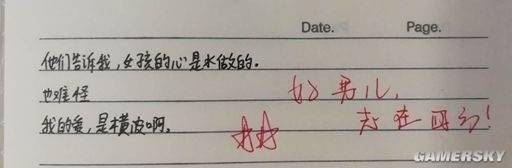 Date. Page.
他们告诉我,女孩的心是水做的.
也难怪
我的爱,是横波啊.
好男儿,
志在四方!
GAMERSKY